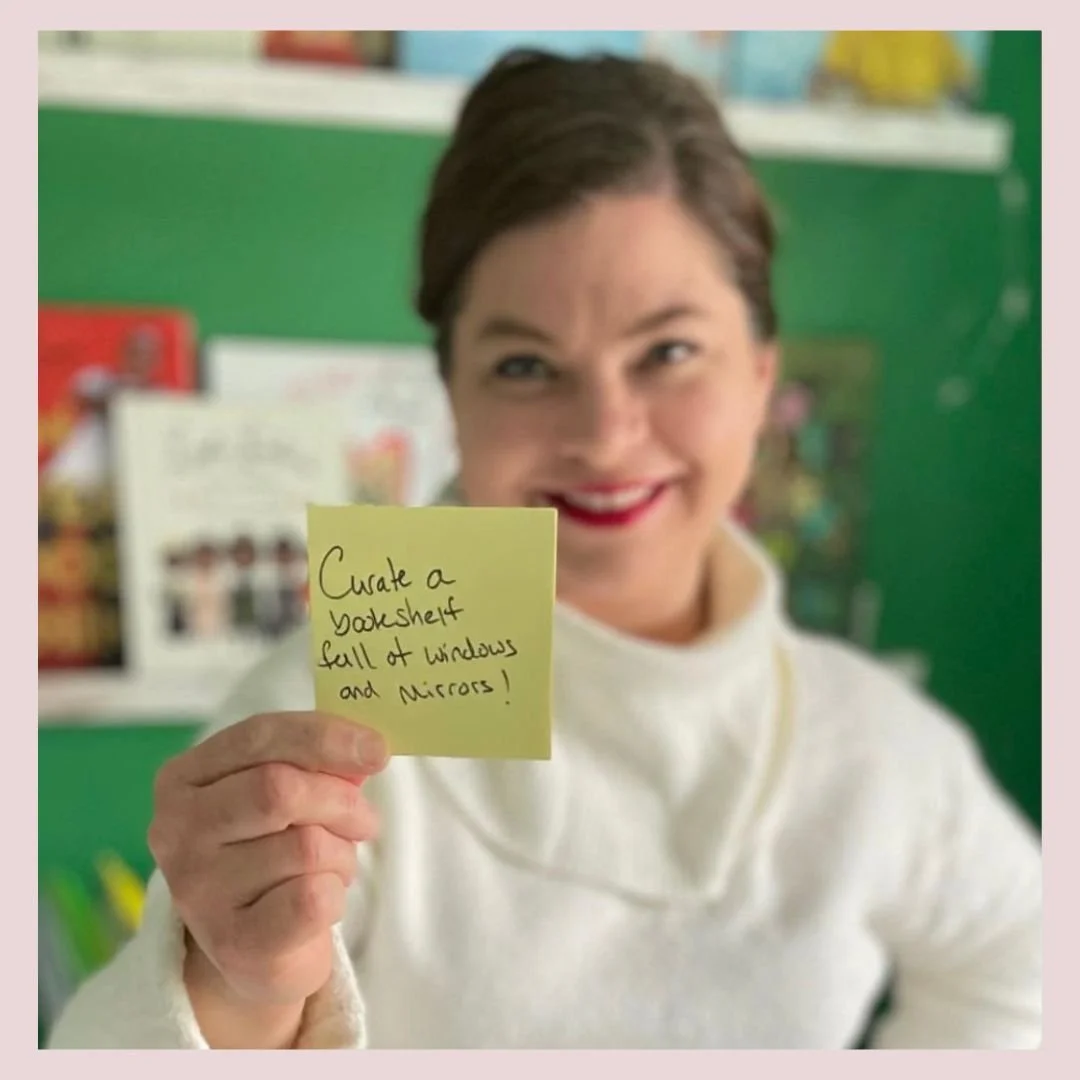 Curate a
bookshelf
full of windows
and mirrors!